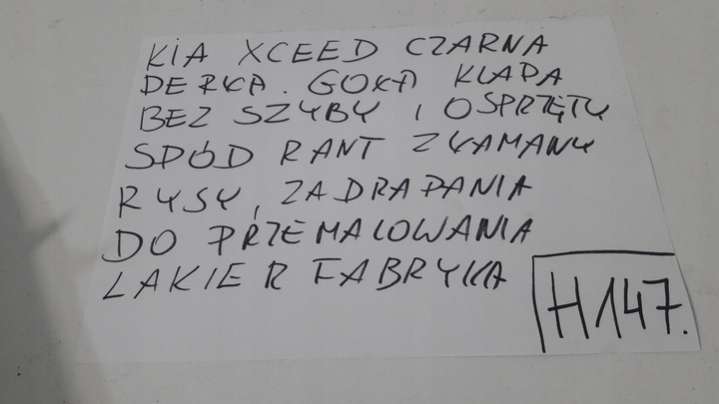 KIA XCEED CZARNA
DERKA. GOŁA KLAPA
BEZ SZYBY I OSPRZĘTU
SPÓD RANT ZŁAMANY
RYSY, ZADRAPANIA
DO PRZEMALOWANIA
LAKIER FABRYKA
H147.